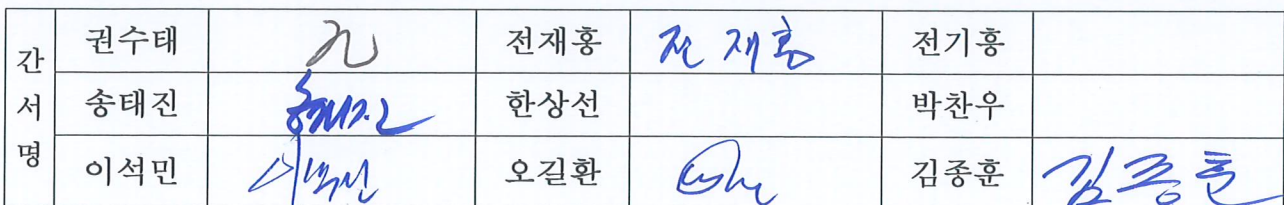 간서명
권수태 전재홍 전재홍 전기흥
송태진 송태진 한상선 박찬우
이석민 이석민 오길환 김종훈 김종훈